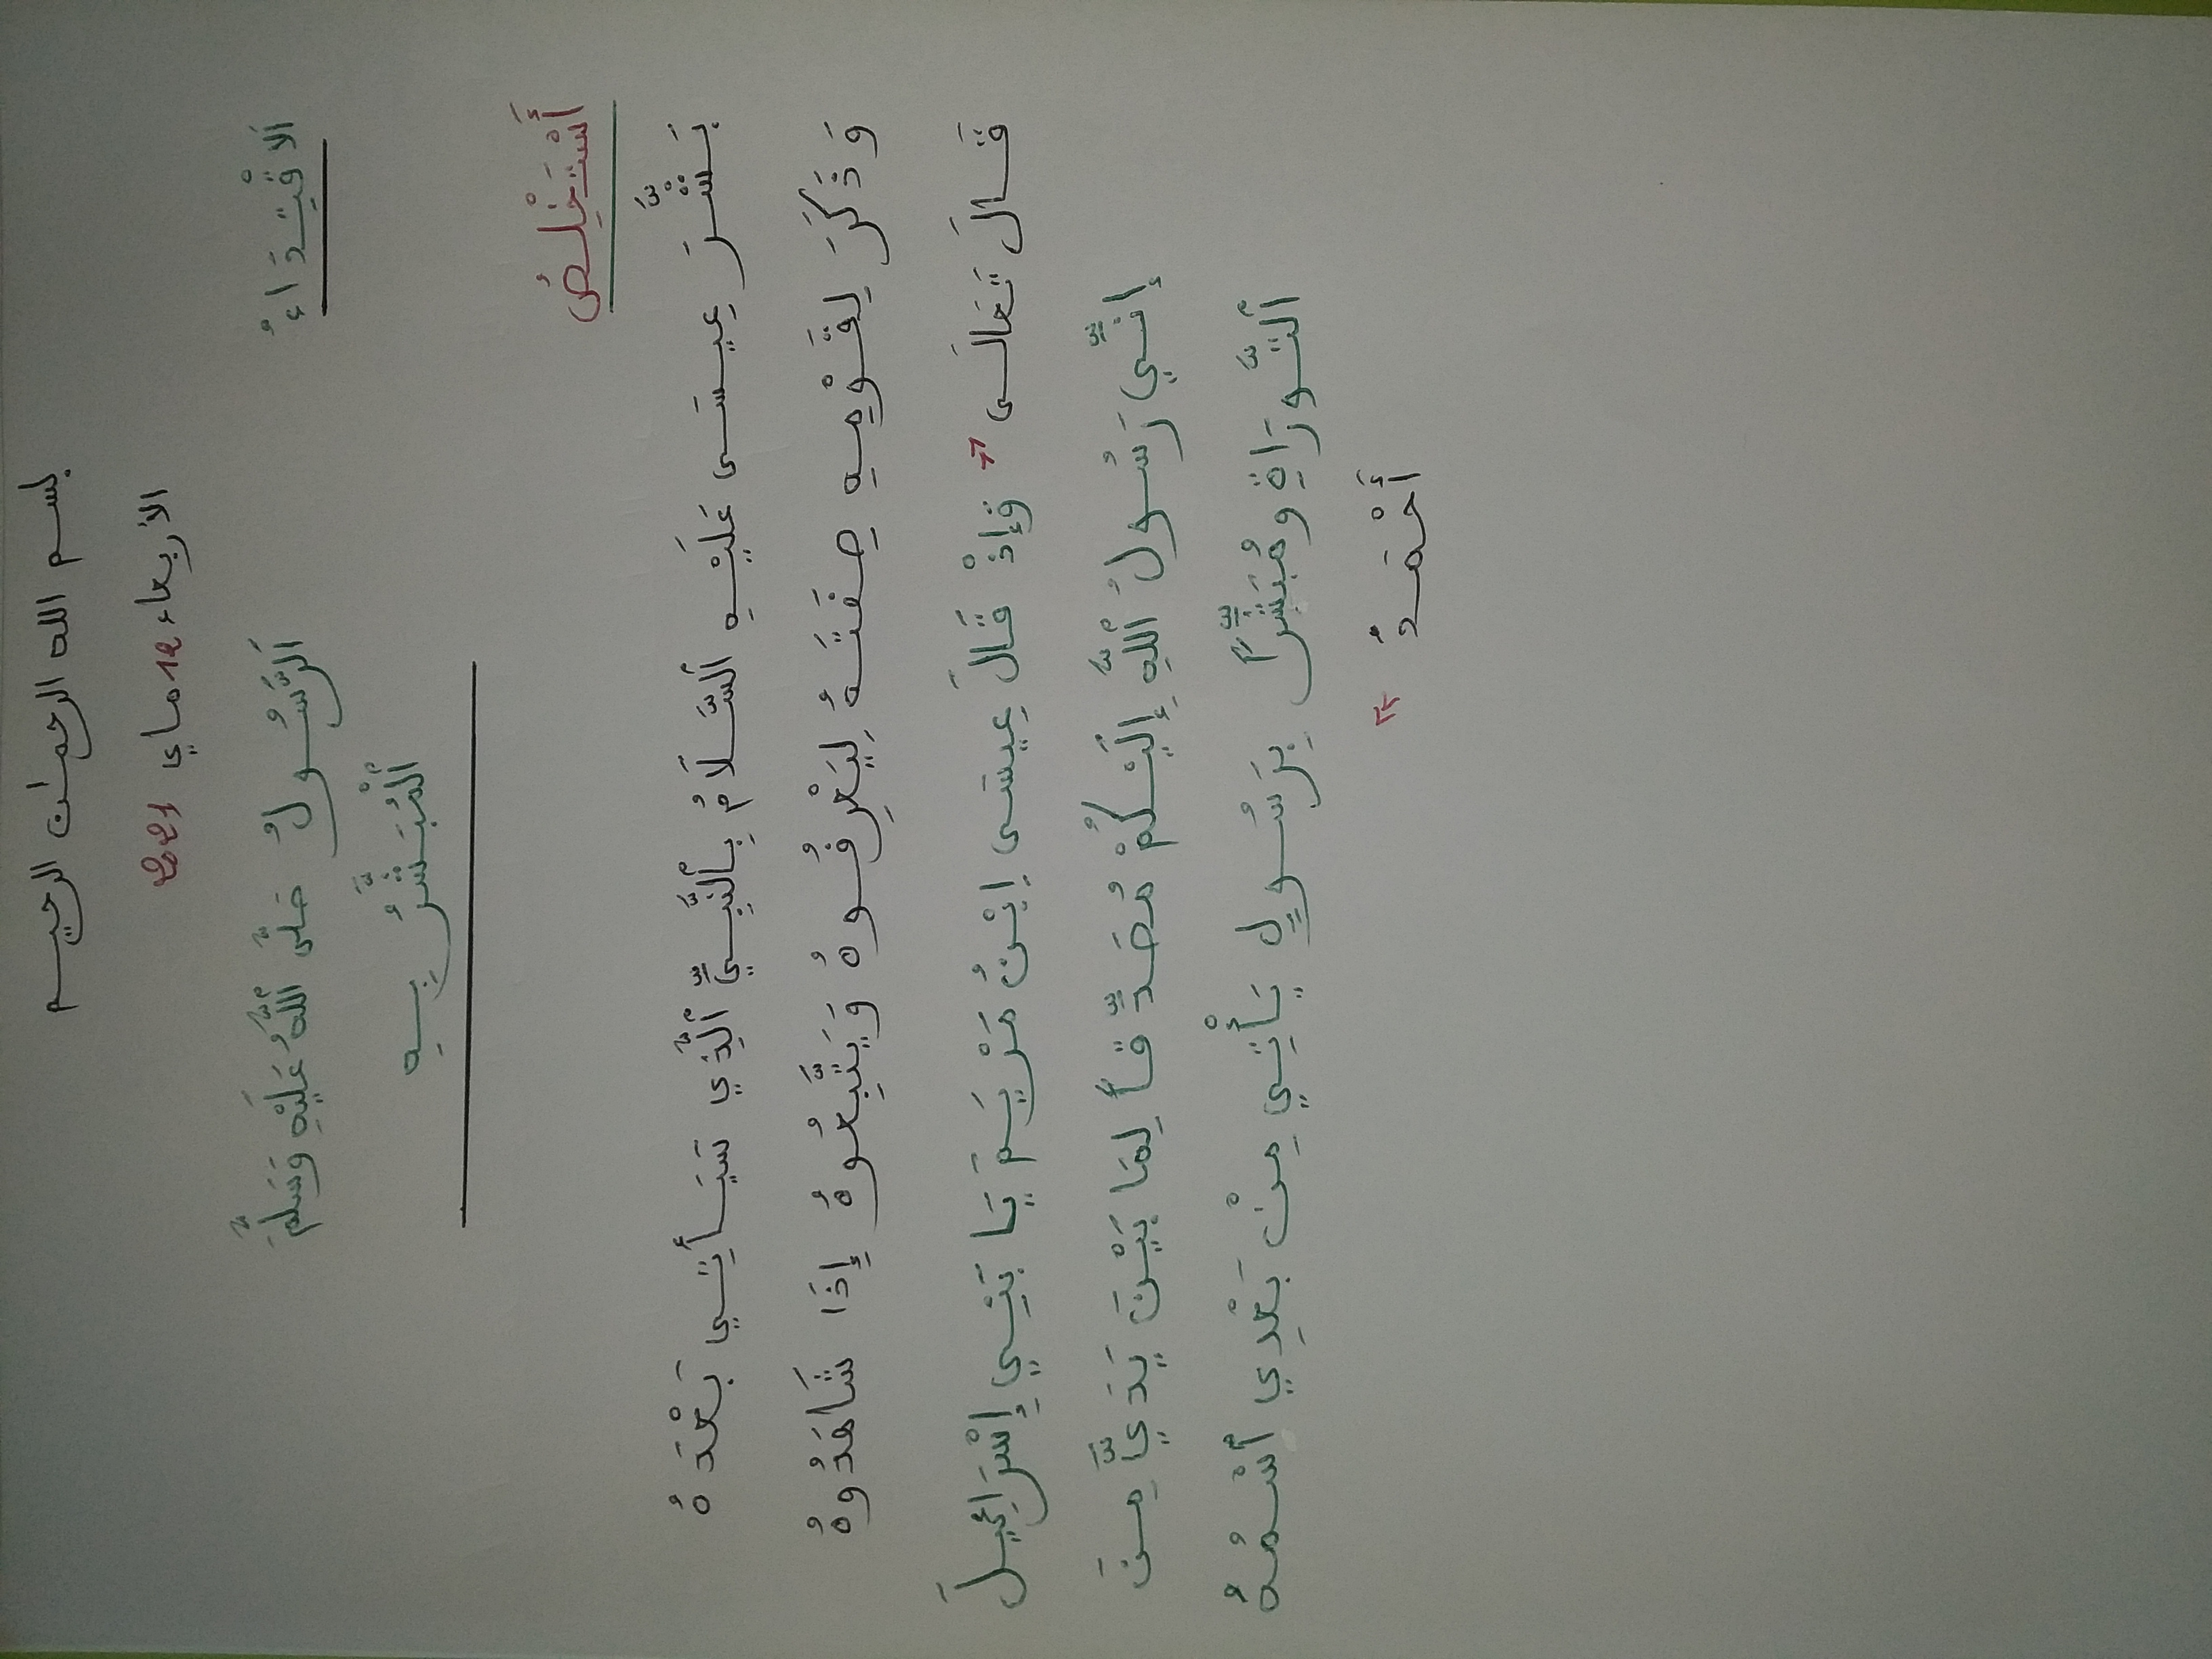 بسم الله الرحمان الرحيم
الأربعاء 12 ماي 2021
اَلاقْتِدَاءُ
اَلرَّسُولُ صَلَّى ٱللَّهُ عَلَيْهِ وَسَلَّمَ
ٱلْمُبَشَّرُ بِهِ
أَسْتَخْلِصُ
بَشَّرَ عِيسَى عَلَيْهِ ٱلسَّلَامُ بِٱلنَّبِيِّ ٱلَّذِي سَيَأتِي بَعْدَهُ
وَذَكَرَ لِقَوْمِهِ صِفَتَهُ لِيَعْرِفُوهُ وَيَتَّبِعُوهُ إِذَا شَاهَدُوهُ
قَالَ تَعَالَى " وَإِذْ قَالَ عِيسَى اِبْنُ مَرْيَمَ يَا بَنِي إِسْرَائِيلَ
إِنِّي رَسُولُ ٱللَّهِ إِلَيْكُمْ مُصَدِّقاً لِمَا بَيْنَ يَدَيَّ مِنَ
ٱلتَّورَاةِ ومُبَشِّرًا بِرَسُولٍ يَأْتِي مِنْ بَعْدِي ٱسْمُهُ
أَحْمَدُ "